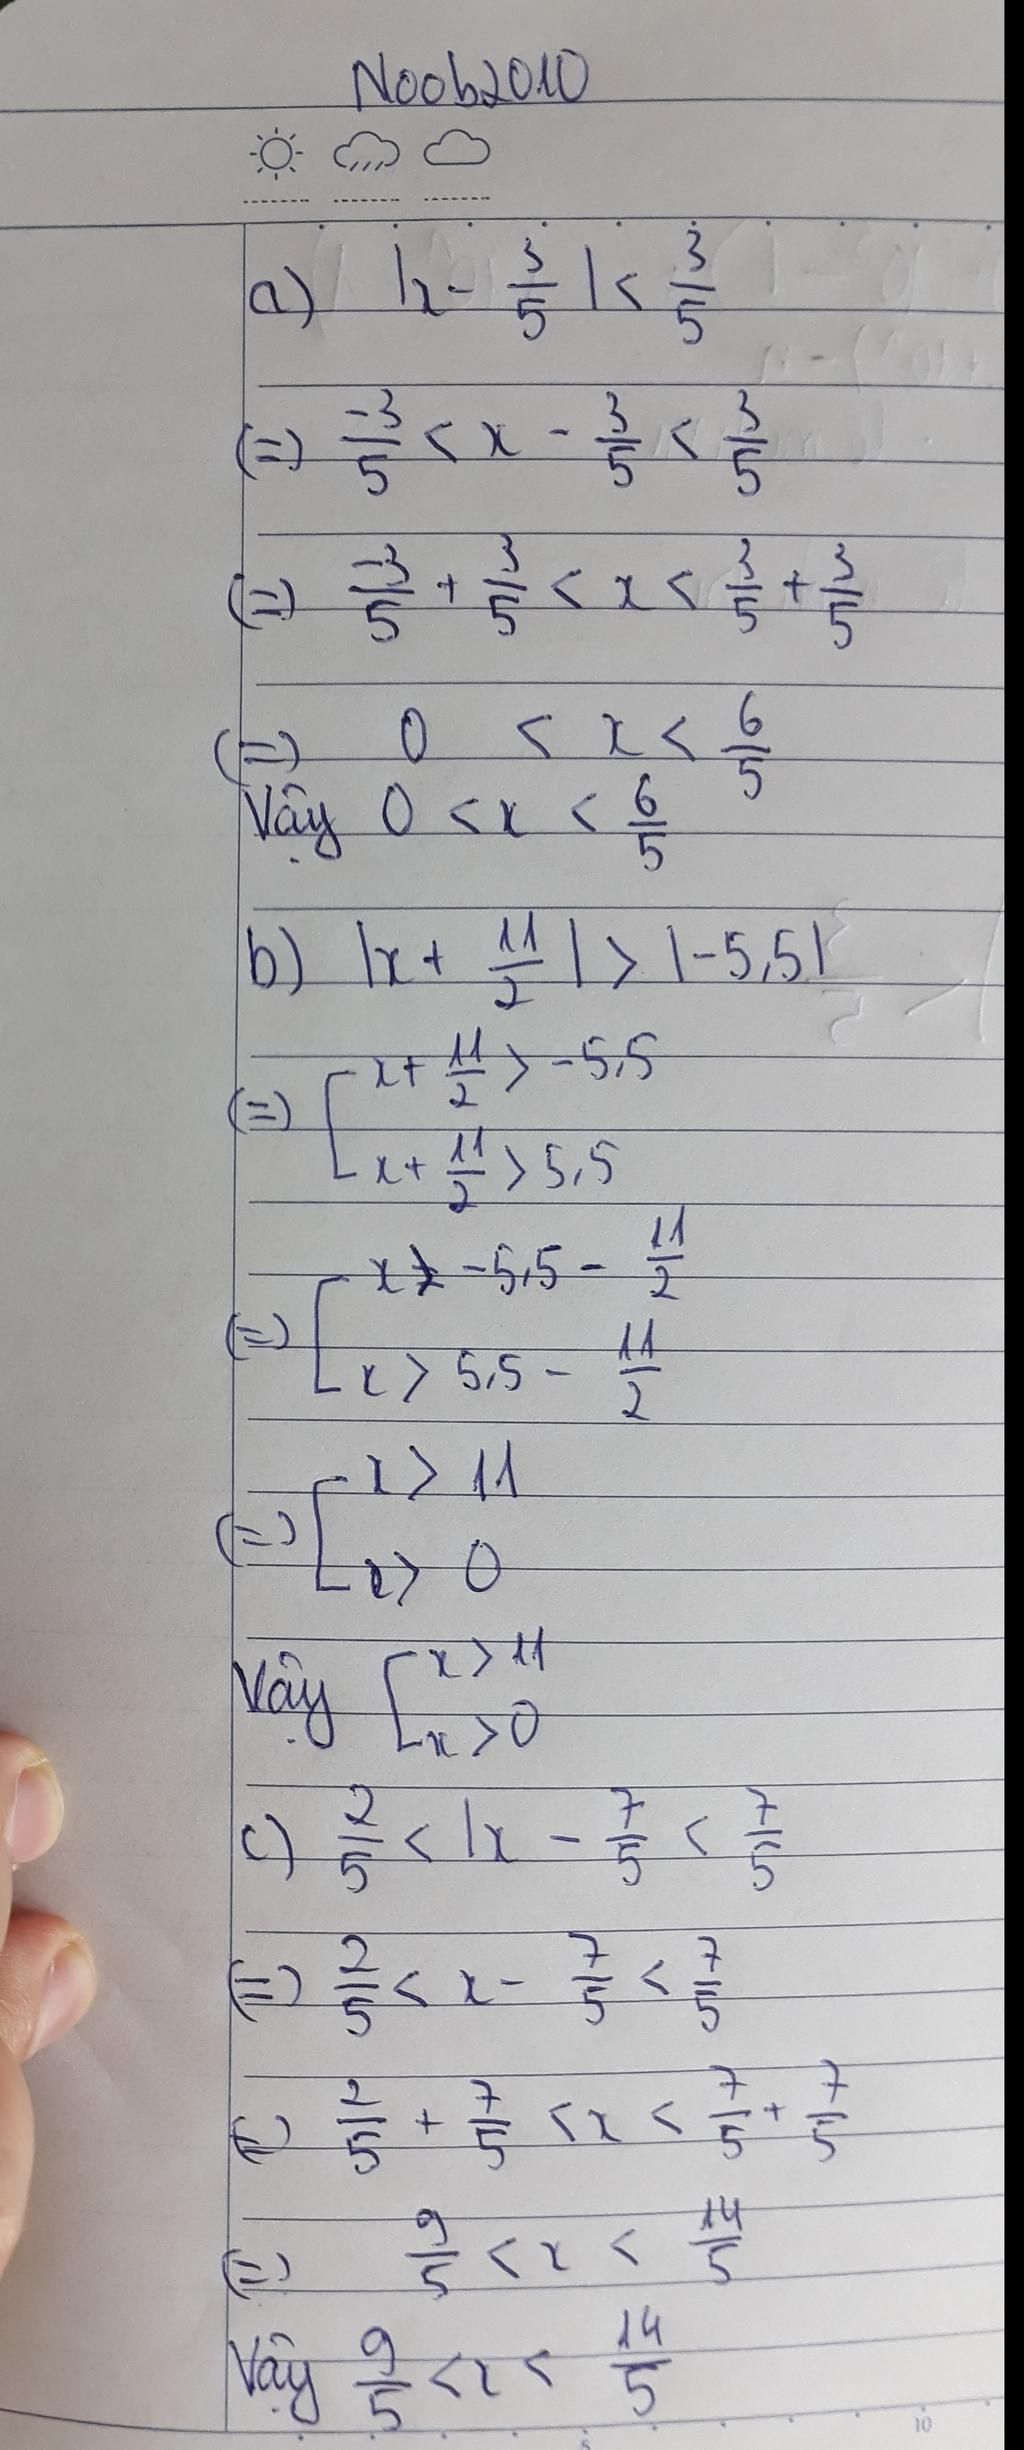 Noob2010
a) |x - 3/5| < 3/5
(=) -3/5 < x - 3/5 < 3/5
(=) -3/5 + 3/5 < x < 3/5 + 3/5
(=) 0 < x < 6/5
Vậy 0 < x < 6/5
b) |x + 11/2| > |-5,5|
(=) [ x + 11/2 > -5,5
x + 11/2 > 5,5
(=) [ x > -5,5 - 11/2
x > 5,5 - 11/2
(=) [ x > 11
x > 0
Vậy [ x > 11
x > 0
c) 2/5 < |x - 7/5 < 7/5
(=) 2/5 < x - 7/5 < 7/5
(=) 2/5 + 7/5 < x < 7/5 + 7/5
(=) 9/5 < x < 14/5
Vậy 9/5 < x < 14/5
5 10